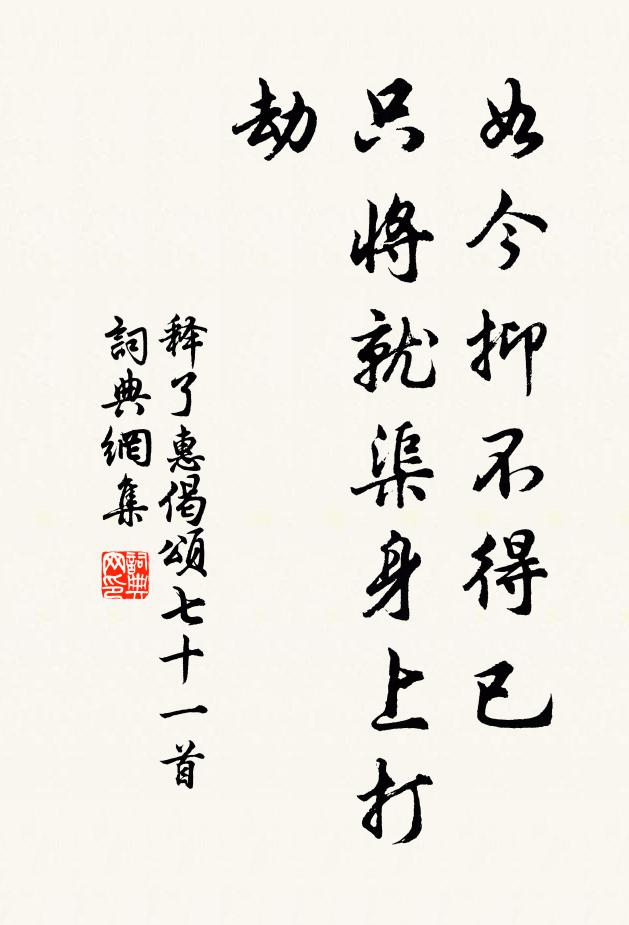 如今抑不得已
只将就渠身上打
劫
释了惠偈颂七十一首
詞典網集
詞典
网印